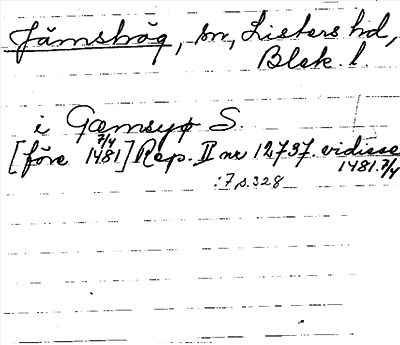 Jämshög, sn, Listers hd,
Blek. l.
i Gæmsyø S.
[före 7/4 1481] Rep. II nr 12737. vidisse
1481.7/4
:7 s.328